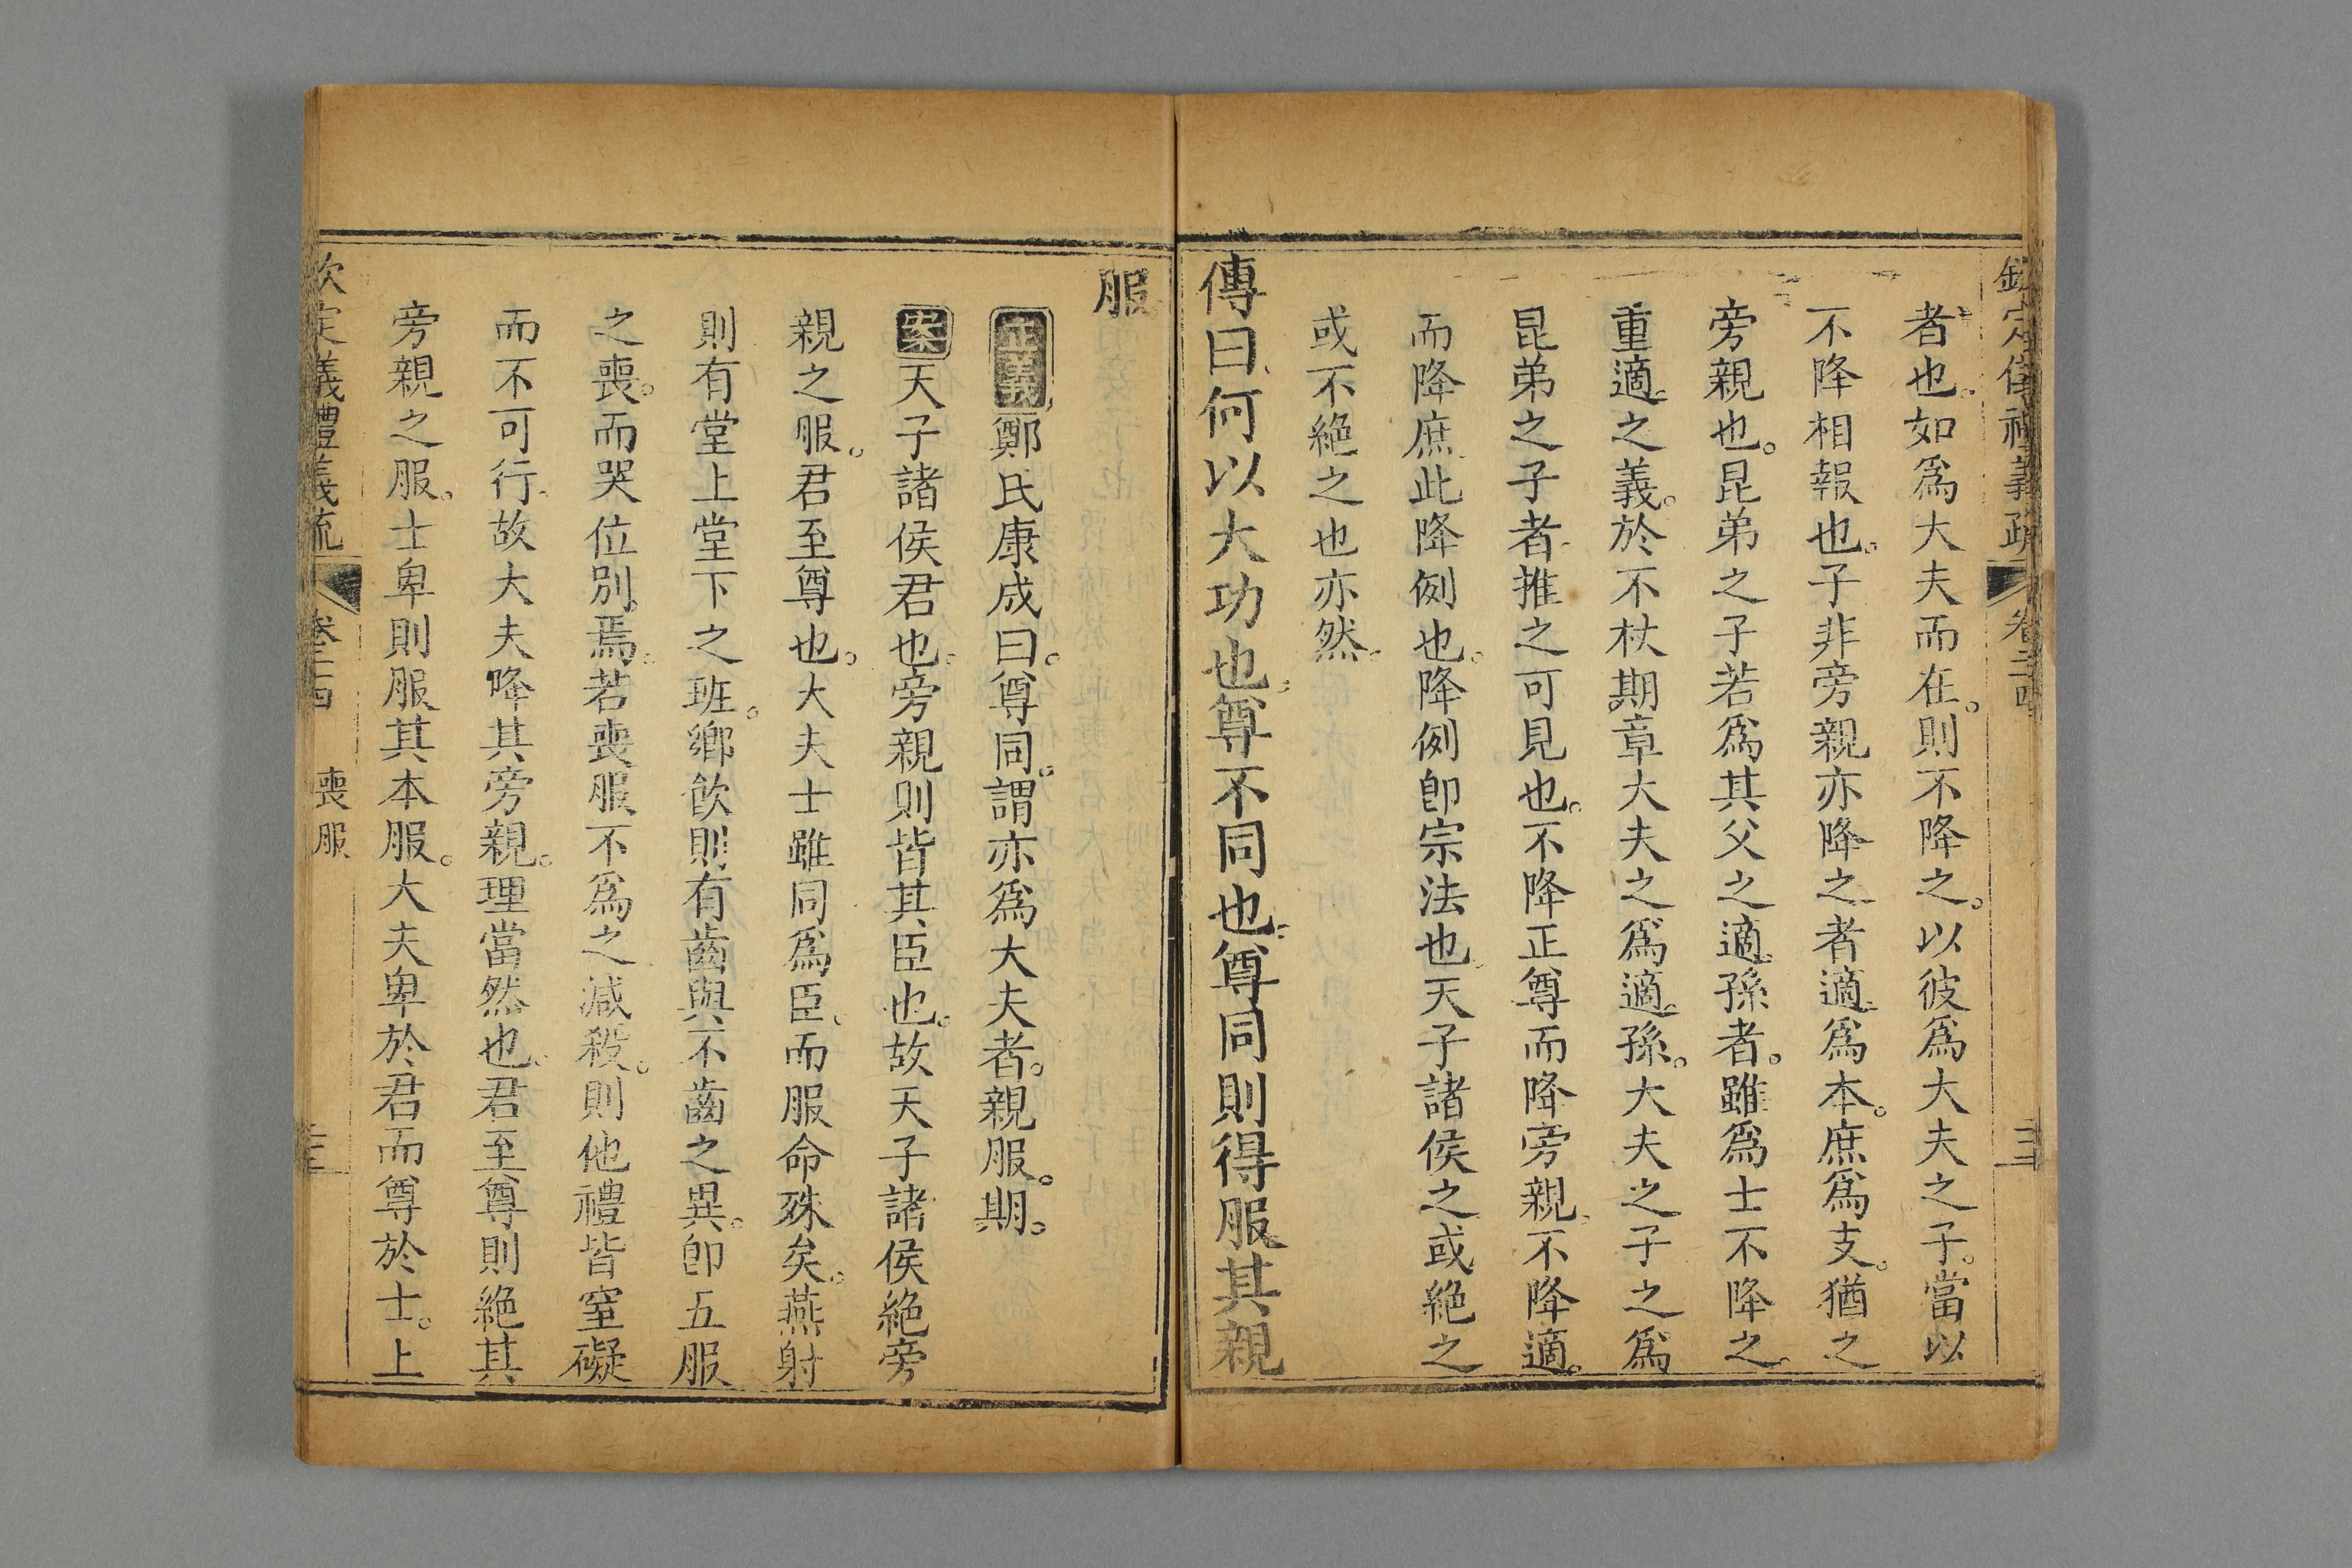 欽定儀禮義疏 卷二十四
者也。如爲大夫而在。則不降之。以彼爲大夫之子。當以
不降相報也。子非旁親亦降之者適爲本。庶爲支。猶之
旁親也。昆弟之子若爲其父之適孫者。雖爲士不降之。
重適之義。於不杖期章大夫之爲適孫。大夫之子之爲
昆弟之子者推之可見也。不降正尊而降旁親。不降適。
而降庶此降例也。降例卽宗法也天子諸侯之或絶之
或不絶之也亦然。
傳曰何以大功也。尊不同也。尊同則得服其親
服。
正義鄭氏康成曰。尊同。謂亦爲大夫者。親服。期。
案天子諸侯君也。旁親則皆其臣也。故天子諸侯絶旁
親之服。君至尊也。大夫士雖同爲臣。而服命殊矣。燕射
則有堂上堂下之班。鄉飮則有齒與不齒之異。卽五服
之喪。而哭位別焉。若喪服不爲之減殺。則他禮皆窒礙
而不可行。故大夫降其旁親。理當然也。君至尊則絶其
旁親之服。士卑則服其本服。大夫卑於君而尊於士。上
欽定儀禮義疏 卷二十四 喪服